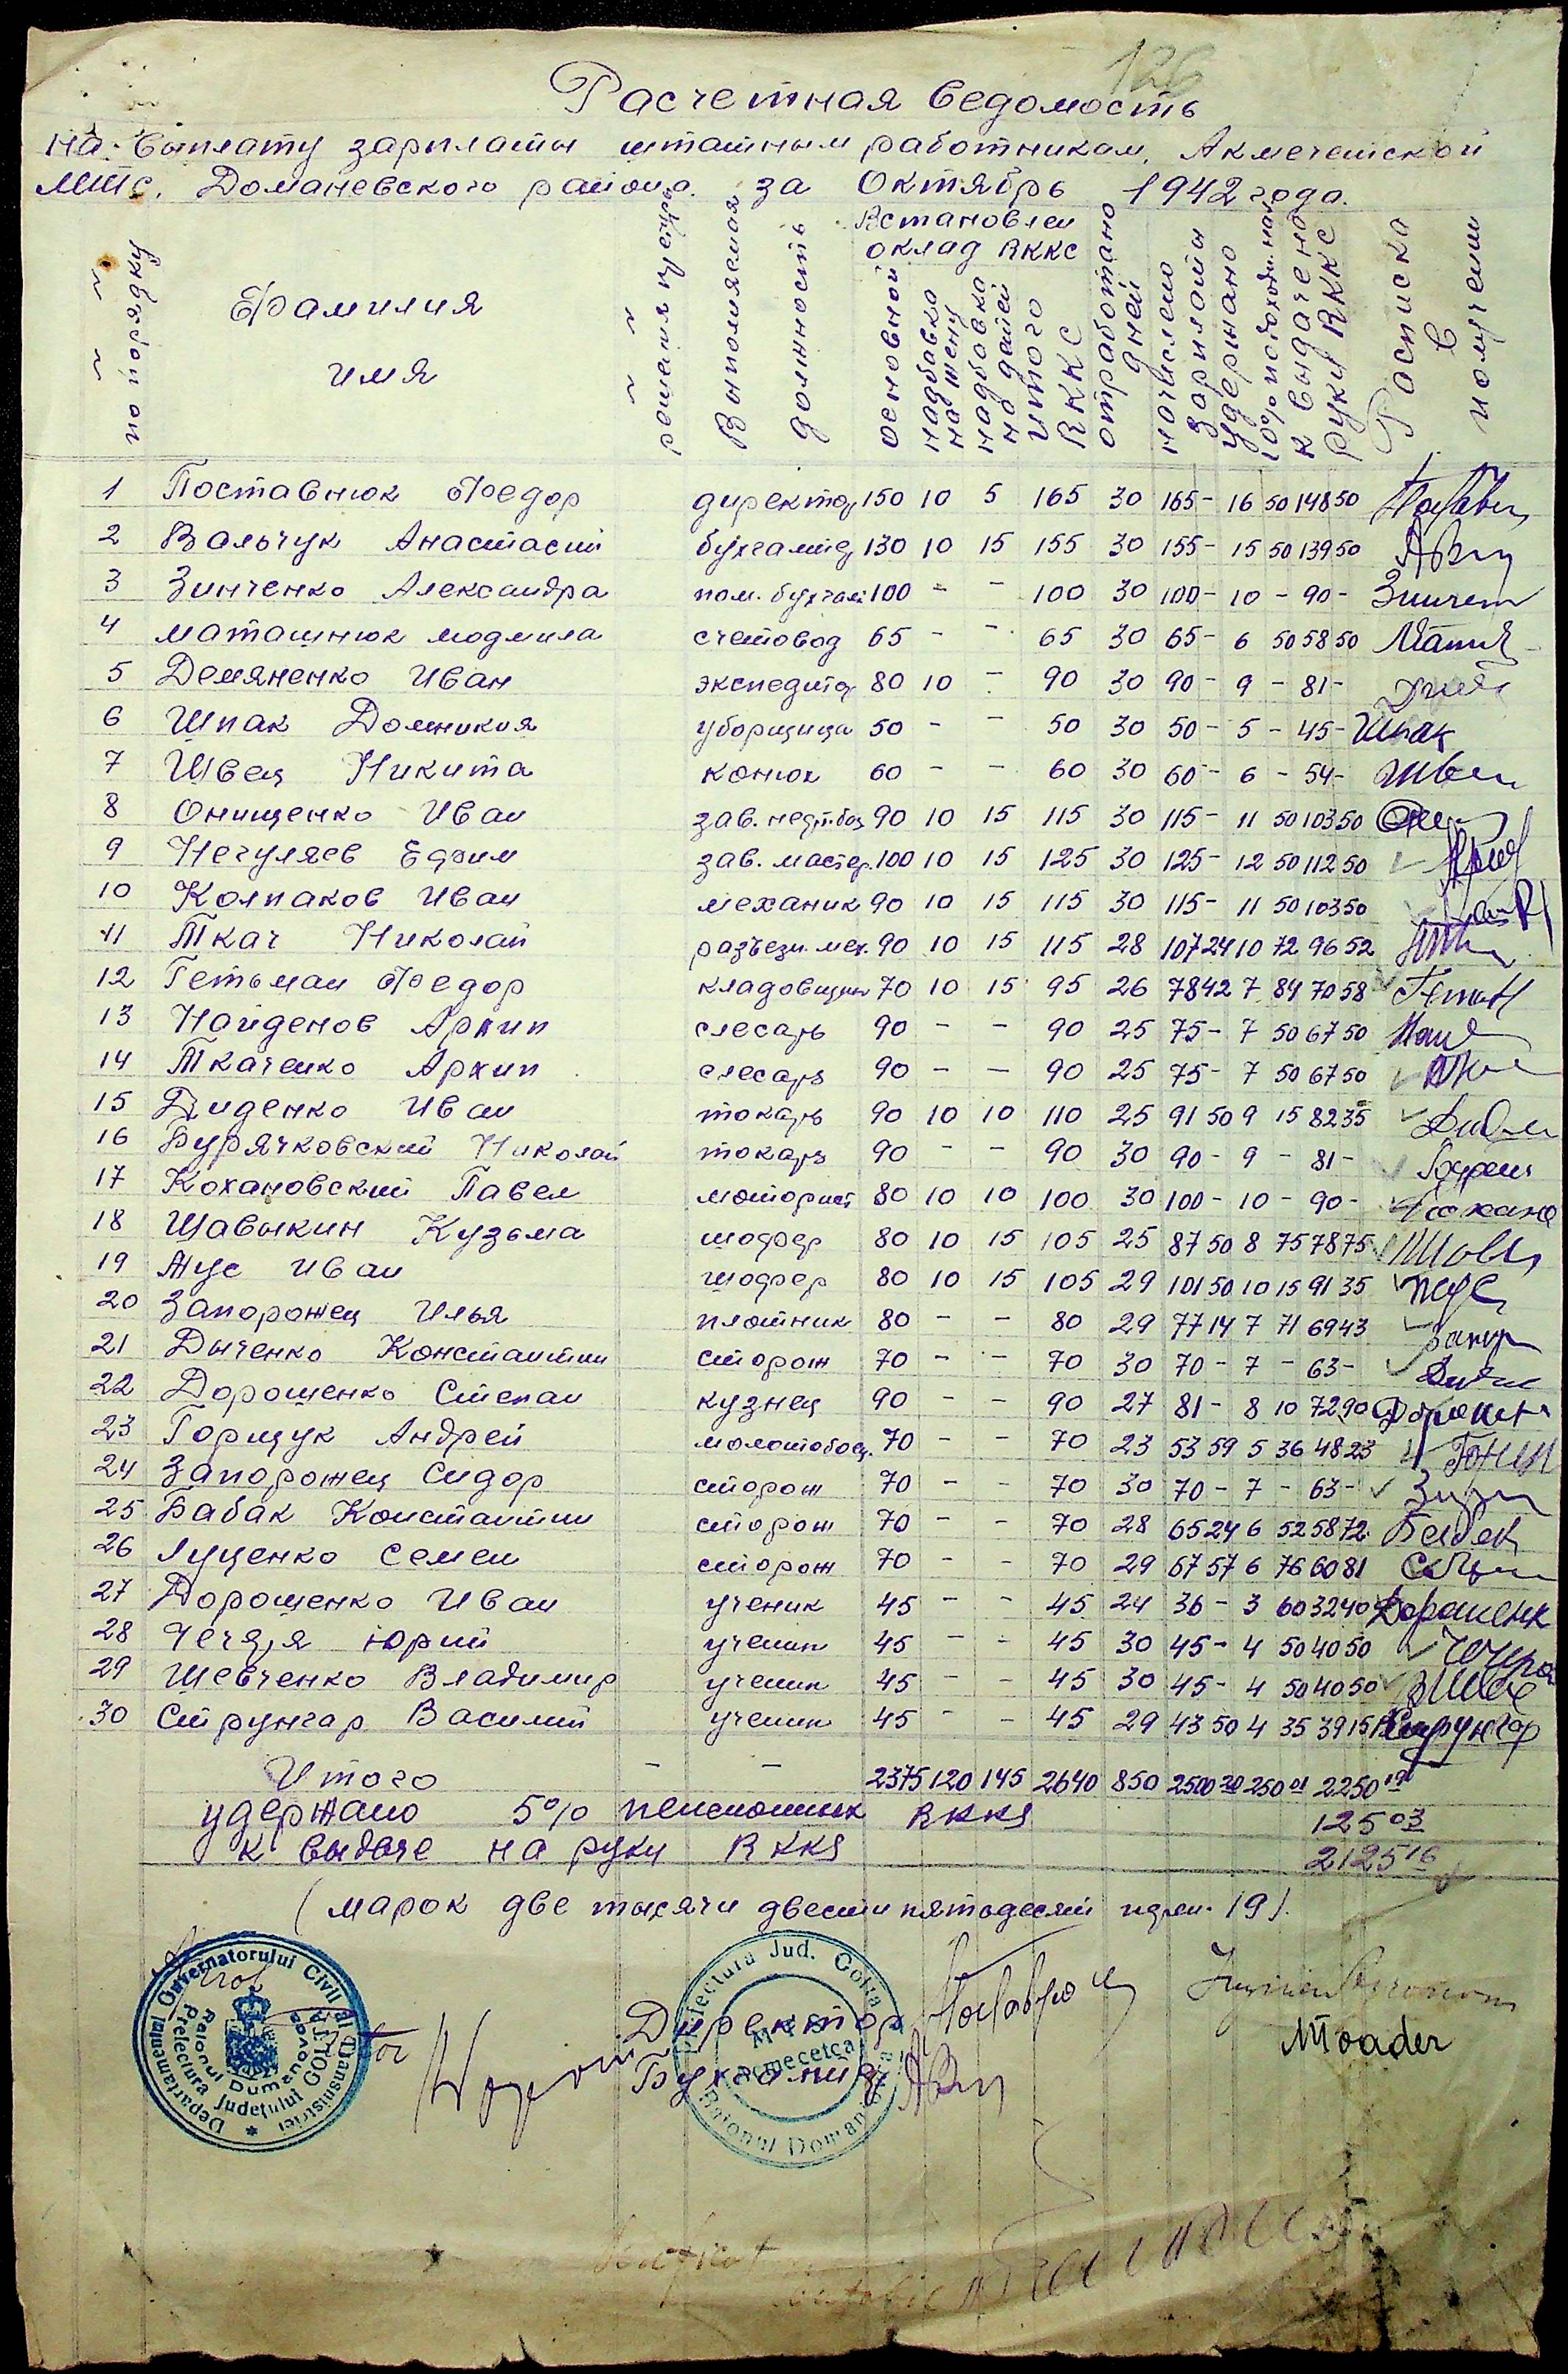 126
Расчетная ведомость
на выплату зарплаты штатным работникам, Акмечетской
МТС, Доманевского района за Октябрь 1942 года.
по порядку
Фамилия
имя
Выполняемая должность
Установлен оклад RKKS
основной
надбавка на жену
надбавка на детей
итого RKKS
отработано дней
начислено зарплаты
удержано 10% подоходн. нал
к выдаче на руки RKKS
Расписка в получении
1 Поставнюк Федор директор 150 10 5 165 30 165- 16 50 148 50
2 Вальчук Анастасий бухгалтер 130 10 15 155 30 155- 15 50 139 50
3 Зинченко Александра пом. бухгал 100 - - 100 30 100- 10 - 90-
4 Маташнюк Людмила счетовод 65 - - 65 30 65- 6 50 58 50
5 Демяненко Иван экспедитор 80 10 - 90 30 90- 9 - 81-
6 Шпак Домникия уборщица 50 - - 50 30 50- 5 - 45- Шпак
7 Швец Никита конюх 60 - - 60 30 60- 6 - 54-
8 Онищенко Иван зав. нефт.баз 90 10 15 115 30 115- 11 50 103 50
9 Негуляев Ефим зав. мастер. 100 10 15 125 30 125- 12 50 112 50
10 Колпаков Иван механик 90 10 15 115 30 115- 11 50 103 50
11 Ткач Николай разъезн. мех. 90 10 15 115 28 107 24 10 72 96 52
12 Гетьман Федор кладовщик 70 10 15 95 26 78 42 7 84 70 58
13 Найденов Архип слесарь 90 - - 90 25 75- 7 50 67 50
14 Ткаченко Архип слесарь 90 - - 90 25 75- 7 50 67 50
15 Диденко Иван токарь 90 10 10 110 25 91 50 9 15 82 35
16 Бурячковский Николай токарь 90 - - 90 30 90- 9 - 81-
17 Кохановский Павел моторист 80 10 10 100 30 100- 10 - 90-
18 Шавыкин Кузьма шофер 80 10 15 105 25 87 50 8 75 78 75
19 Жус Иван шофер 80 10 15 105 29 101 50 10 15 91 35
20 Запорожец Илья плотник 80 - - 80 29 77 14 7 71 69 43
21 Дыченко Константин сторож 70 - - 70 30 70- 7 - 63-
22 Дорошенко Степан кузнец 90 - - 90 27 81- 8 10 72 90
23 Горщук Андрей молотобоец. 70 - - 70 23 53 59 5 36 48 23
24 Запорожец Сидор сторож 70 - - 70 30 70- 7 - 63-
25 Бабак Константин сторож 70 - - 70 28 65 24 6 52 58 72
26 Луценко Семен сторож 70 - - 70 29 67 57 6 76 60 81
27 Дорошенко Иван ученик 45 - - 45 24 36- 3 60 32 40
28 Чечеря Юрий ученик 45 - - 45 30 45- 4 50 40 50
29 Шевченко Владимир ученик 45 - - 45 30 45- 4 50 40 50
30 Струнгар Василий ученик 45 - - 45 29 43 50 4 35 39 15 Струнгар
Итого - - 2375 120 145 2640 850 2500 20 250 01 2250 19
удержано 5% пенсионных RKKS 125 03
к выдаче на руки RKKS 2125 16
(марок две тысячи двести пятьдесят пфен. 19).
Departamentul Guvernatorului Civil al Transnistriei
Prefectura Judeţului GOLTA
Raionul Dumanovca
Prefectura Jud. Golta
MTS
Acmecetca
Raionul Domanovca
Директор
Бухгалтер
Moader